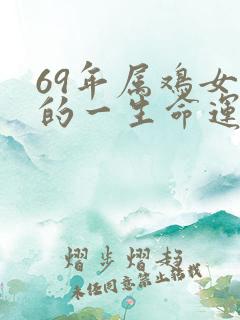 69年属鸡女
的一生命运
熠步熠趋
未经同意禁止转载